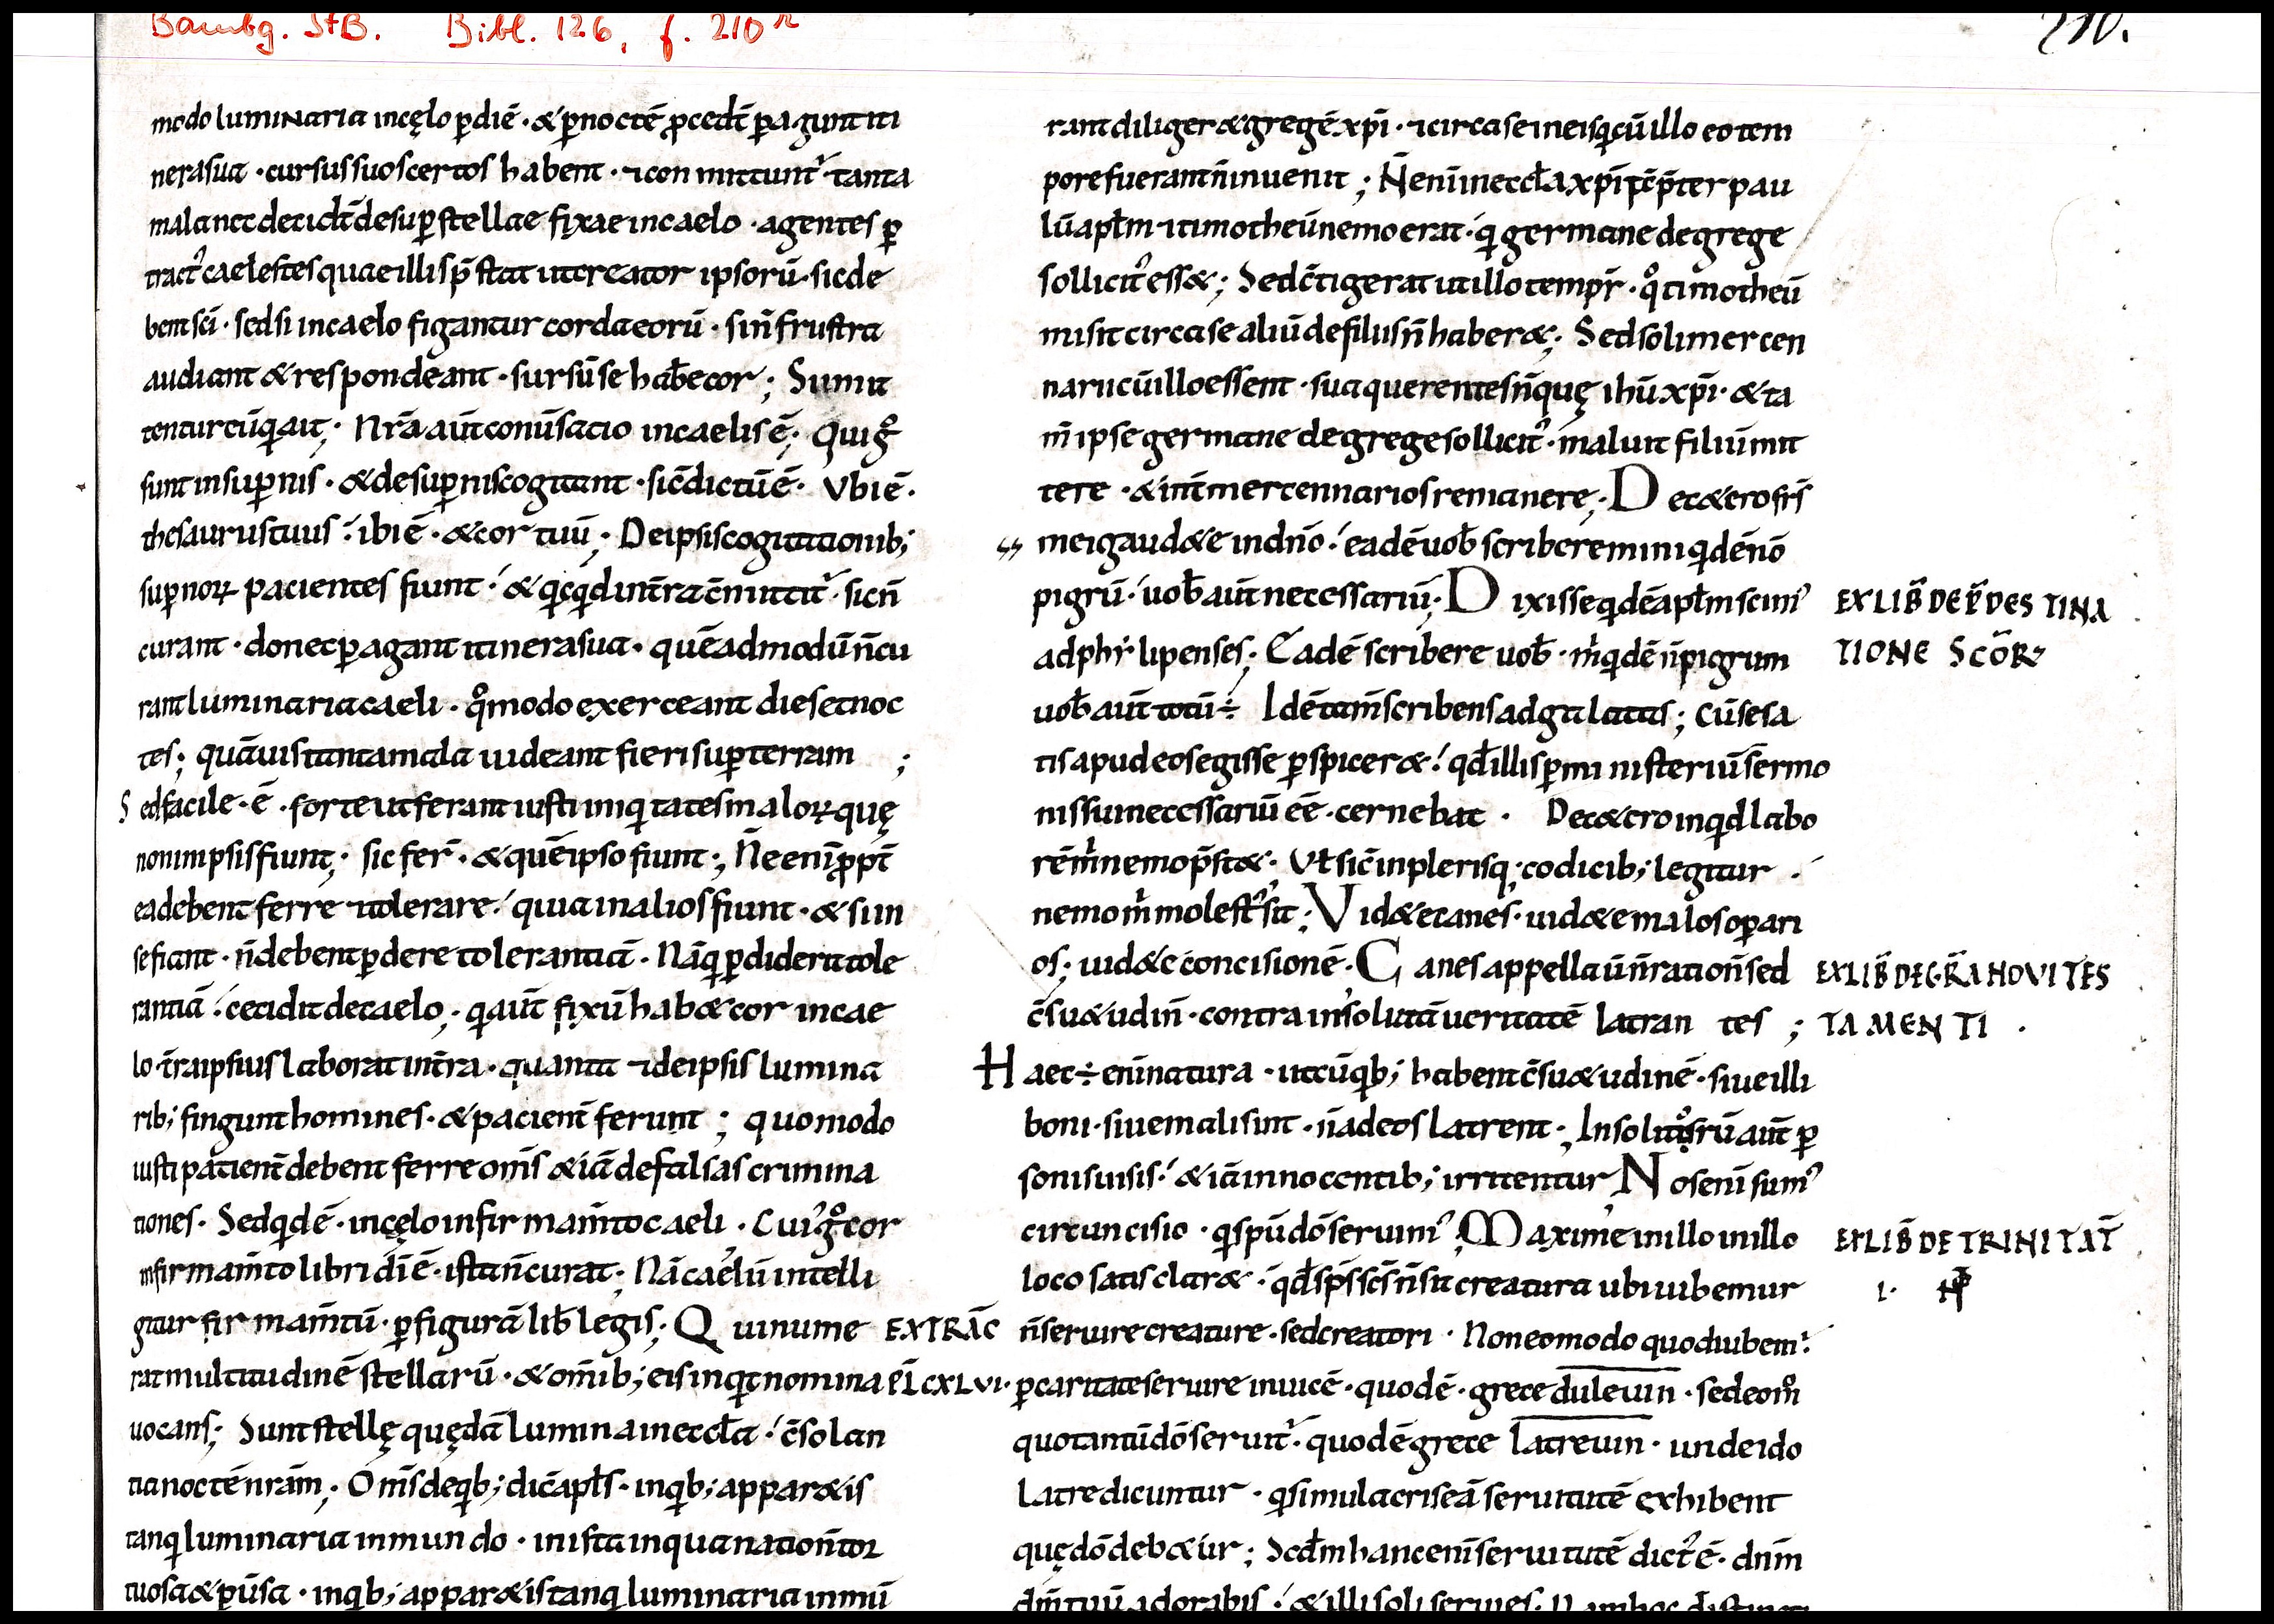 Bambg. StB. Bibl. 126, f. 210r
210.
modo luminaria incęlo ꝑdiē · & ꝑnoctē ꝓcedt̄ ꝑagunt iti
nerasua · cursus suos certos habent · ⁊ conmittunt᷑ · tanta
mala nec decidt̄ desuꝑ stellae fixae incaelo · agentes ꝑ
tract᾿ caelestes quae illis p̄stat ut creator ipsorū · sic de
bent sc̄i · sed si incaelo figantur corda eorū · sin̄ frustra
audiant & respondeant · sursū se hab̄e cor ; Si imit
tentur eūq̣ ait ; Nr̄a aūt conūsatio incaelis ē ; Qui gͦ
sunt insuꝑnis · & desuꝑnis cogitant · sic̄ dictū ē · Vbi ē ·
thesaurus tuus ibi ē · & cor tuū ; De ipsis cogitationib;
suꝑnoꝝ pacientes fiunt & qͥcqͥd int̄ra c̄mittit᷑ · sic n̄
curant · donec ꝑagant itinera sua · quēadmodū n̄ cu
rant luminaria caeli · qͦmodo exerceant dies et noc
tes ; quāuis tanta mala uideant fieri suꝑ terram ;
Sed facile · ē · forte ut ferant iusti iniqͥtates maloꝝ quę
non inipsis fiunt ; sic fer̄ · & quē ipso fiunt ; Nē enī ꝓpt̄
ea debent ferre ⁊ tolerare quia in alios fiunt · & si in
se fiant · n̄ debent ꝑdere tolerantiā · Nā qͥ ꝑdiderit tole
rantiā cecidit decaelo ; qͥ aūt fixū hab& cor incae
lo · t̄ra ipsius laborat int̄ra · quanta ⁊ de ipsis lumina
rib; fingunt homines · & pacient̄ ferunt ; quomodo
iusti patient̄ debent ferre om̄s & iā de falsas crimina
tiones · Sed qͥdē · incęlo infirmam̄to caeli · Cui᾿ gͦ cor
infirmam̄to libri dī ē · ista n̄ curat ; Nā caelū intelli
gitur firmam̄tū · ꝑ figurā lib̄ legis ; Qui nume EXTRAC̄
rat multitudinē stellarū · & om̄ib; eis inqͥt nomina PL̄ CXLVI ·
uocans ; Sunt stellę quędā lumina inecclā c̄solan
tia noctē nrām ; Om̄s de qͥb; dic̄ apl̄s · inqͥb; appar&is
tanq̣ luminaria inmundo · inista inqua nation̄ tor
tuosa & ꝑūsa · inqͥb; appar&is tanq̣ luminaria inmū
rant diliger& gregē xp̄i · ⁊ circa se ineis qͥ cū illo eo tem
pore fuerant n̄ inuenit ; Nē enī inecclā xp̄i tc̄ p̄ter pau
lū aplm̄ ⁊ timotheū nemo erat · qͥ germane de grege
sollicit᾿ ess& ; Sed c̄tigerat ut illo tempr̄ · qͦ timotheū
misit circa se aliū de filiis n̄ haber& ; Sed soli mercen
narii cū illo essent · sua querentes n̄ quę ihū xp̄i · & ta
m̄ ipse germane de grege sollicit᾿ · maluit filiū mit
tere · & int̄ mercennarios remanere ; De c&ero frs̄
mei gaud&e indn̄o eadē uob̄ scribere mihi qͥdē nō
pigrū · uob̄ aūt necessariū ; Dixisse qͥdē aplm̄ scim᾿ EX LIB̄ DE P̄DESTINA
ad philipenses ; Eadē scribere uob̄ · m̄ qͥdē n̄ pigrum TIONE SCŌꝜ
uob̄ aūt totū ÷ Idē tam̄ scribens ad galatas ; cū se sa
tis apud eos egisse ꝑspicer& qd̄ illis ꝑ ministeriū sermo
nis sui necessariū eē · cernebat · De c&ero inqͥd labo
rē m̄ nemo p̄st& · Vl̄ sic̄ inplerisq; codicib; legitur ·
nemo m̄ molest᾿ sit ; Vid&e canes · uid&e malos oꝑari
os ; uid&e concisionē · Canes appellauū n̄ ration̄ sed EX LIB̄ DE GR̄A NOVI TES
c̄su&udin̄ · contra insolitā ueritatē latran tes ; TAMENTI ·
Haec ÷ enī natura · ut cū qͥb; habent c̄su&udinē · siue illi
boni · siue mali sint · n̄ ad eos latrent ; Insolitoꝝrū aūt ꝑ
sonis uisis & iā innocentib; irritentur Nos enī sum᾿
circuncisio · qͥ spū dō seruim᾿ ; Maxime inillo inillo EX LIB̄ DE TRINITAT̄
loco satis clar& qd̄ sps̄ scs̄ n̄ sit creatura ubi iubemur I·
n̄ seruire creature · sed creatori · Non eo modo quo diubem᷑
ꝑ caritate seruire inuicē · quod ē · grece duleuin · sed eo mͦ
quo tantū dō seruit᷑ · quod ē grece latreuin · unde ido
latre dicuntur · qͥ simulacris eā seruitutē exhibent
quę dō deb&ur ; Scdm̄ hanc enī seruitutē dict᾿ ē · dnm̄
dm̄ tuū adorabis & illi soli seruies ;